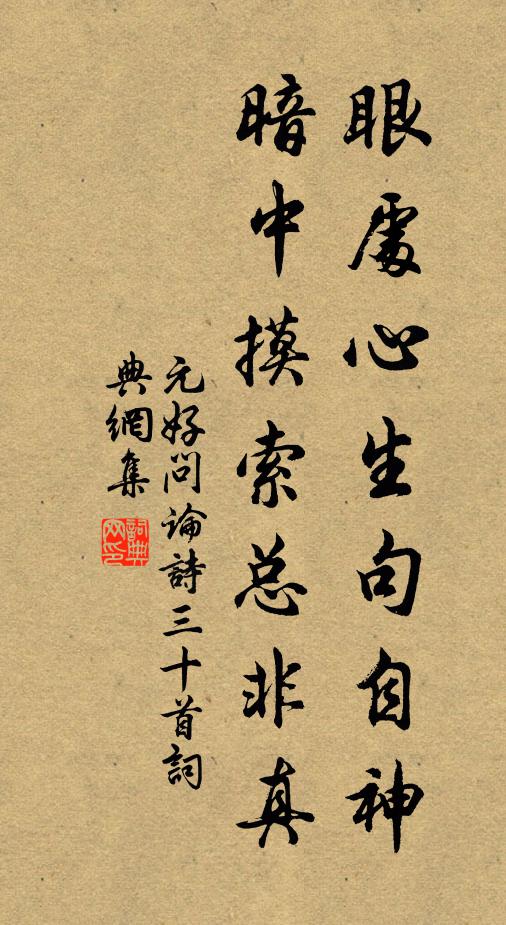 眼處心生句自神
暗中摸索总非真
元好问論詩三十首詞
典網集
詞典
网印